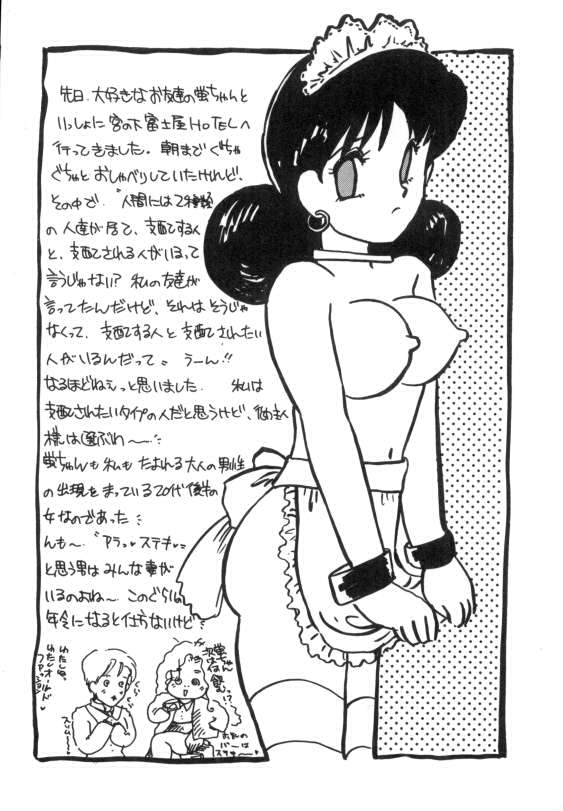 先日、大好きなお友達の蛍ちゃんと
いっしょに宮の下富士屋HOTELへ
行ってきました。朝までぐちゃ
ぐちゃとおしゃべりしていたけれど、
その中で、"人間には2種類
の人達が居て、支配する人
と、支配される人がいるって
言うじゃない? 私の友達が
言ってたんだけど、それはそうじゃ
なくって、支配する人と支配されたい
人がいるんだって。" うーん!!
なるほどねぇっと思いました。 私は
支配されたいタイプの人だと思うけど、ご主人
様は選ぶわ〜
蛍ちゃんも私もたよれる大人の男性
の出現をまっている20代後半の
女なのであった
んも〜"アラッステキ"
と思う男はみんな妻が
いるのよね〜 このぐらいの
年令になると仕方ないけど